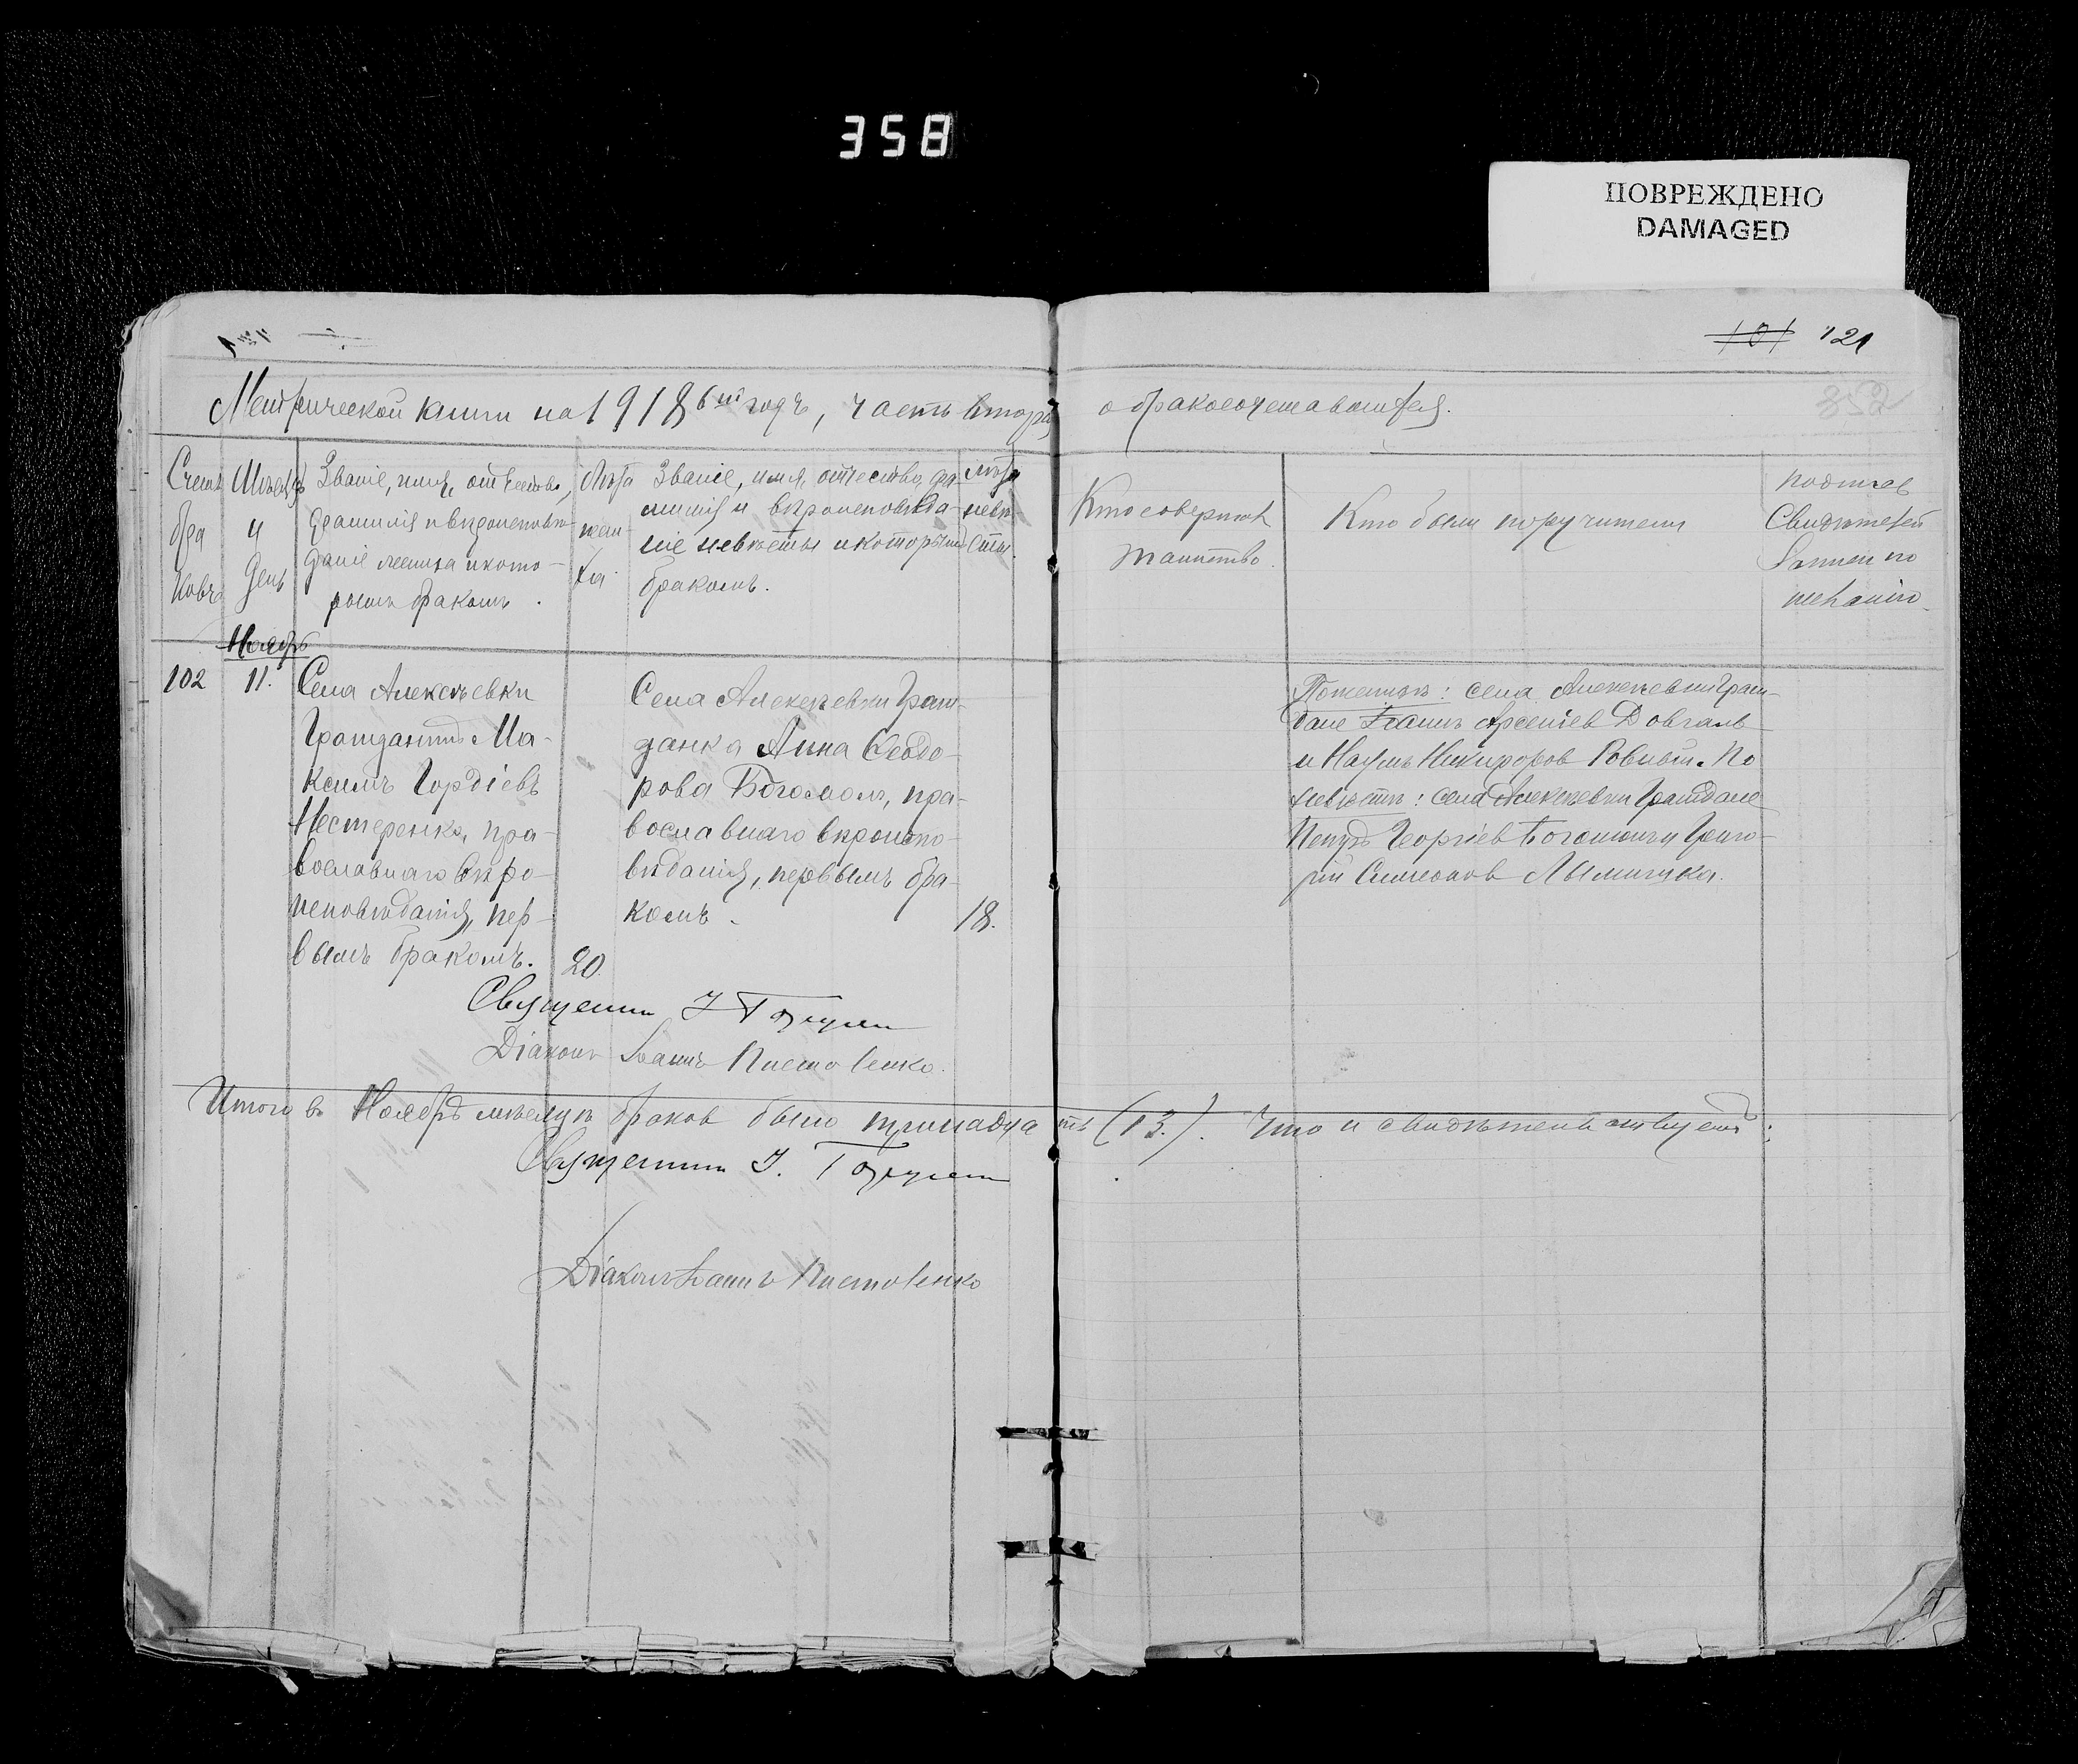 358
ПОВРЕЖДЕНО
DAMAGED
101 121
352
Метрической книги на 1918-ый годъ, часть вторая о бракосочетавшихся.
Счетъ
бра
ковъ
Мѣсяцъ
и
день
Званіе, имя, отчество,
фамилія и вѣроисповѣ-
даніе жениха и кото-
рымъ бракомъ.
Лѣта
жени
ха.
Званіе, имя, отчество, фа-
милія и вѣроисповѣда-
ніе невѣсты и которымъ
бракомъ.
Лѣта
невѣ-
сты.
Кто совершалъ
таинство.
Кто были поручители
Подпись
Свидѣтелей
записи по
желанію
Ноябрь
102 11.
Села Алексѣевки
Гражданинъ Ма-
ксимъ Гордіевъ
Нестеренко, пра-
вославнаго вѣро-
исповѣданія, пер-
вымъ бракомъ.
20.
Села Алексѣевки Граж-
данка Анна Ѳеодо-
рова Богомолъ, пра-
вославнаго вѣроиспо-
вѣданія, первымъ бра-
комъ.
18.
По женихѣ: села Алексѣевки Граж-
дане Іоаннъ Арсеніев Довгаль
и Наумъ Никифоров По
невѣстѣ: села Алексѣевки Граждане
Петръ Георгіев Богомолъ и Григо-
рій Симеонов
Священник І.
Діаконъ Іоаннъ
Итого въ Ноябрѣ мѣсяцѣ браков было тринадцать (13.). Что и свидѣтельствуемъ:
Священник І.
Діаконъ Іоаннъ